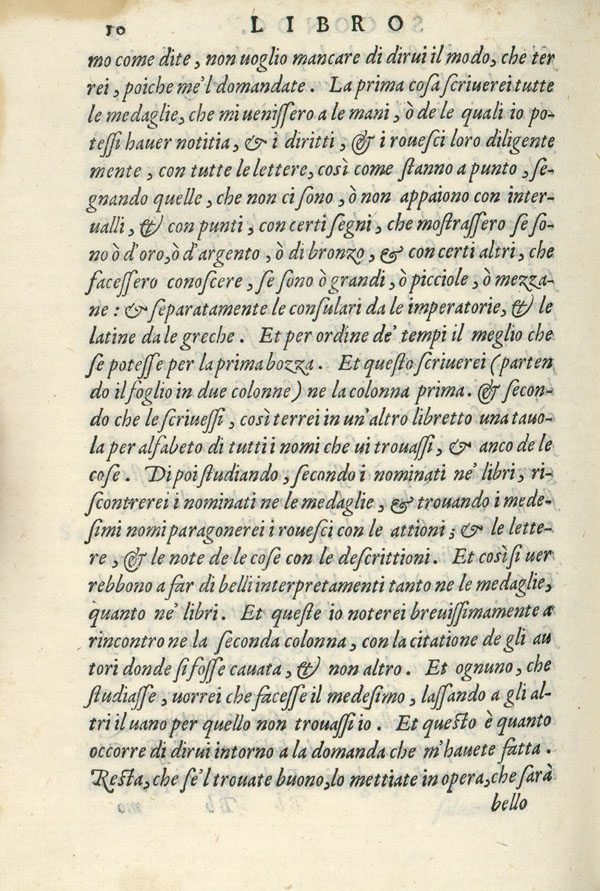 10 LIBRO
mo come dite, non uoglio mancare di dirui il modo, che ter
rei, poiche me'l domandate. La prima cosa scriuerei tutte
le medaglie, che mi uenissero a le mani, ò de le quali io po-
tessi hauer notitia, & i diritti, & i rouesci loro diligente
mente, con tutte le lettere, così come stanno a punto, se-
gnando quelle, che non ci sono, ò non appaiono con inter-
ualli, & con punti, con certi segni, che mostrassero se so-
no ò d'oro, ò d'argento, ò di bronzo, & con certi altri, che
facessero conoscere, se sono ò grandi, ò picciole, ò mezza-
ne: & separatamente le consulari da le imperatorie, & le
latine da le greche. Et per ordine de' tempi il meglio che
se potesse per la prima bozza. Et questo scriuerei (parten
do il foglio in due colonne) ne la colonna prima. & secon-
do che le scriuessi, così terrei in un'altro libretto una tauo-
la per alfabeto di tutti i nomi che ui trouassi, & anco de le
cose. Di poi studiando, secondo i nominati ne' libri, ri-
scontrerei i nominati ne le medaglie, & trouando i mede-
simi nomi paragonerei i rouesci con le attioni; & le lette-
re, & le note de le cose con le descrittioni. Et così si uer
rebbono a far di belli interpretamenti tanto ne le medaglie,
quanto ne' libri. Et queste io noterei breuissimamente a
rincontro ne la seconda colonna, con la citatione de gli au
tori donde si fosse cauata, & non altro. Et ognuno, che
studiasse, uorrei che facesse il medesimo, lassando a gli al-
tri il uano per quello non trouassi io. Et questo è quanto
occorre di dirui intorno a la domanda che m'hauete fatta.
Resta, che se'l trouate buono, lo mettiate in opera, che sarà
bello